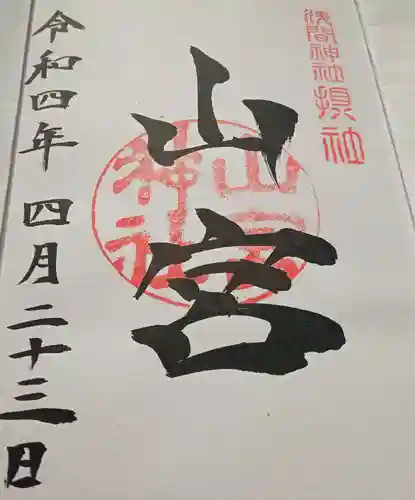 浅間神社摂社
山宮
山宮神社
令和四年四月二十三日